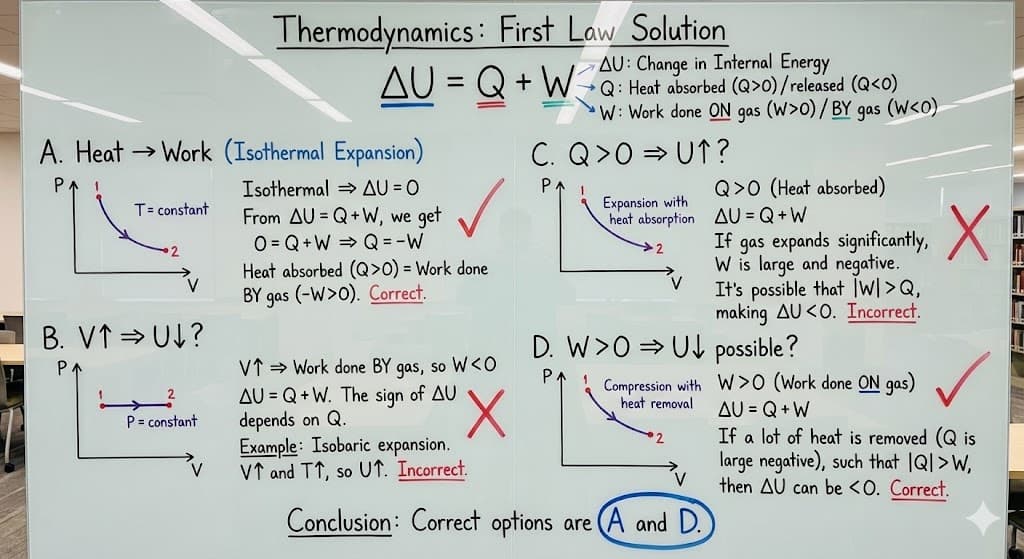 Thermodynamics: First Law Solution
ΔU = Q + W
ΔU: Change in Internal Energy
Q: Heat absorbed (Q>0)/released (Q<0)
W: Work done ON gas (W>0)/BY gas (W<0)
A. Heat → Work (Isothermal Expansion)
P
1
T = constant
2
V
Isothermal ⇒ ΔU = 0
From ΔU = Q + W, we get
0 = Q + W ⇒ Q = -W
Heat absorbed (Q>0) = Work done
BY gas (-W>0). Correct.
B. V↑ ⇒ U↓?
P
1
2
P = constant
V
V↑ ⇒ Work done BY gas, so W<0
ΔU = Q + W. The sign of ΔU
depends on Q.
Example: Isobaric expansion.
V↑ and T↑, so U↑. Incorrect.
C. Q>0 ⇒ U↑?
P
1
Expansion with
heat absorption
2
V
Q>0 (Heat absorbed)
ΔU = Q + W
If gas expands significantly,
W is large and negative.
It's possible that |W| > Q,
making ΔU < 0. Incorrect.
D. W>0 ⇒ U↓ possible?
P
1
Compression with
heat removal
2
V
W>0 (Work done ON gas)
ΔU = Q + W
If a lot of heat is removed (Q is
large negative), such that |Q| > W,
then ΔU can be < 0. Correct.
Conclusion: Correct options are A and D.